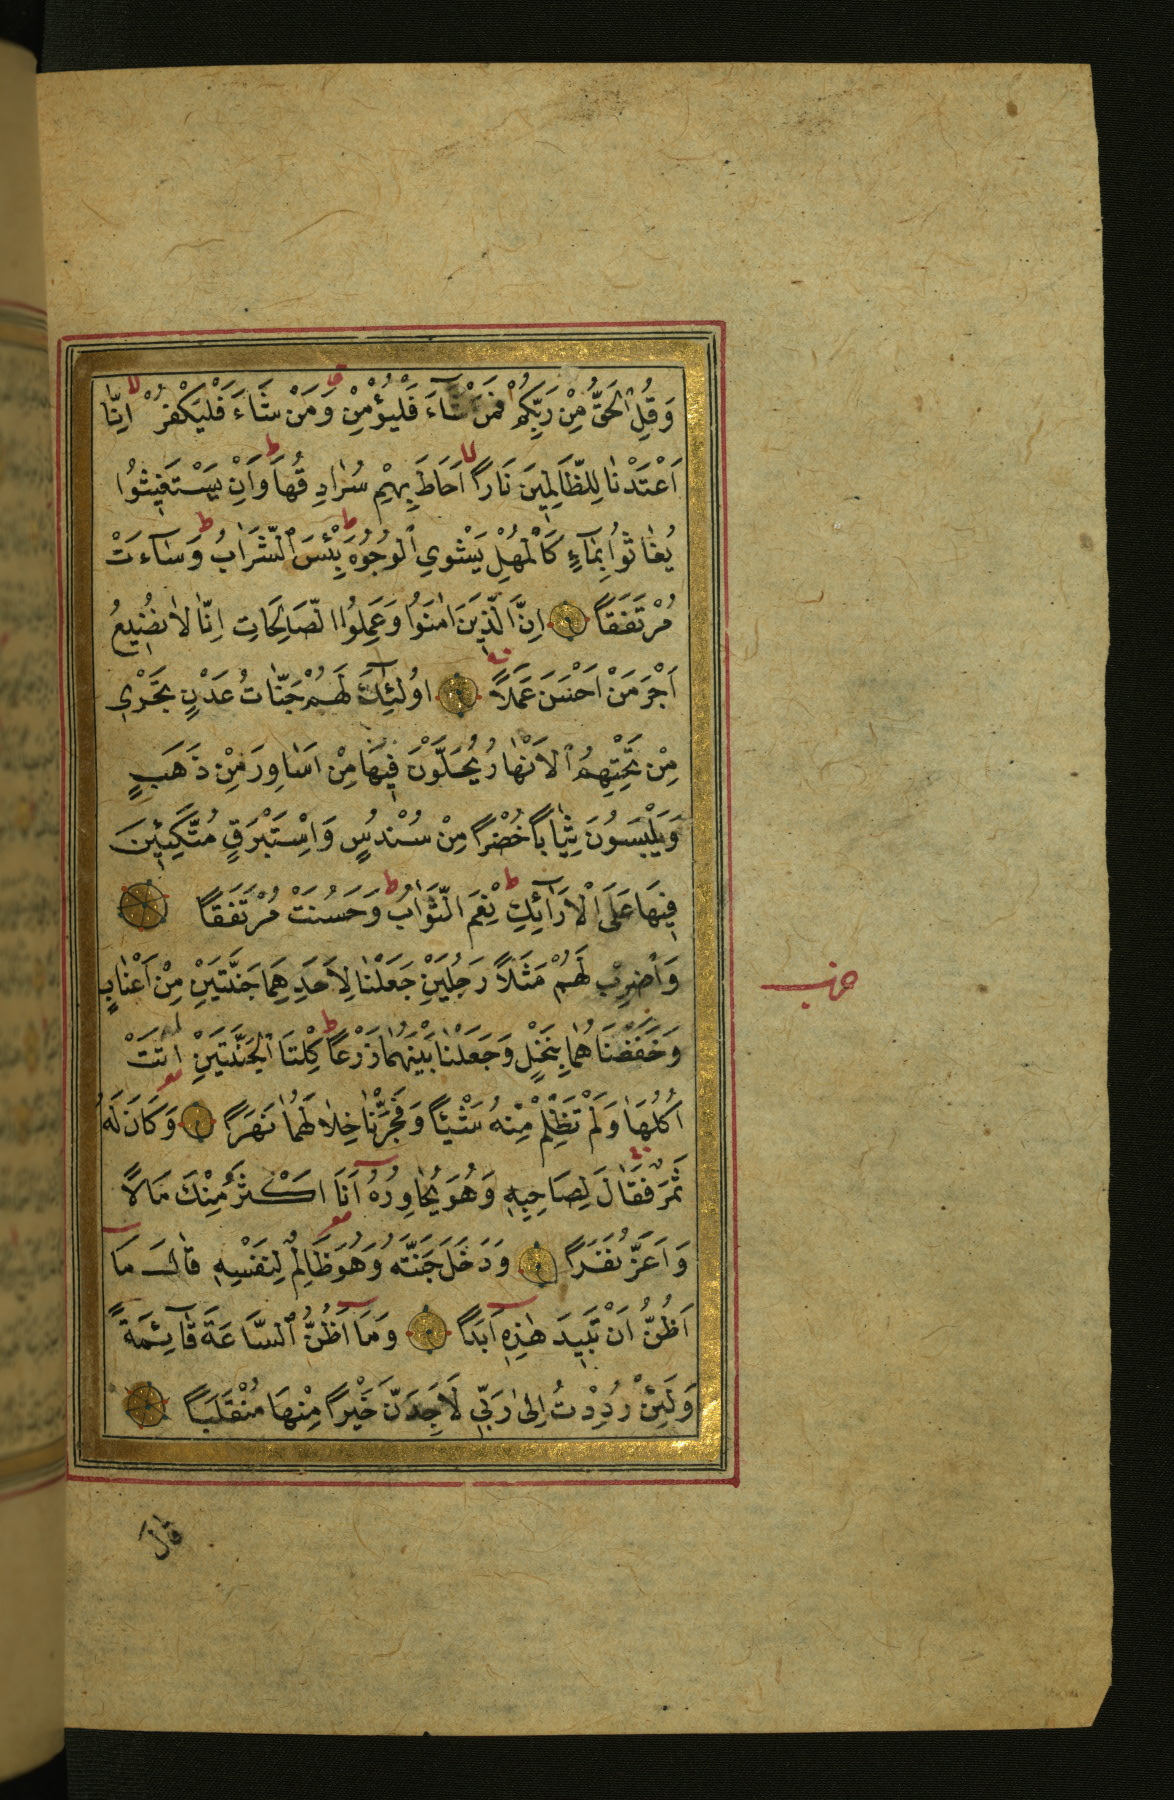 وَقُلِ الْحَقُّ مِنْ رَبِّكُمْ فَمَنْ شَآءَ فَلْيُؤْمِنْ وَمَنْ شَآءَ فَلْيَكْفُرْ اِنَّا
اَعْتَدْنَا لِلظَّالِمِينَ نَارًا اَحَاطَ بِهِمْ سُرَادِقُهَا وَاِنْ يَسْتَغِيثُوا
يُغَاثُوا بِمَآءٍ كَالْمُهْلِ يَشْوِي الْوُجُوهَ بِئْسَ الشَّرَابُ وَسَآءَتْ
مُرْتَفَقًا اِنَّ الَّذِينَ اٰمَنُوا وَعَمِلُوا الصَّالِحَاتِ اِنَّا لَا نُضِيعُ
اَجْرَ مَنْ اَحْسَنَ عَمَلًا اُولٰٓئِكَ لَهُمْ جَنَّاتُ عَدْنٍ تَجْرِي
مِنْ تَحْتِهِمُ الْاَنْهَارُ يُحَلَّوْنَ فِيهَا مِنْ اَسَاوِرَ مِنْ ذَهَبٍ
وَيَلْبَسُونَ ثِيَابًا خُضْرًا مِنْ سُنْدُسٍ وَاِسْتَبْرَقٍ مُتَّكِئِينَ
فِيهَا عَلَى الْاَرَآئِكِ نِعْمَ الثَّوَابُ وَحَسُنَتْ مُرْتَفَقًا
وَاضْرِبْ لَهُمْ مَثَلًا رَجُلَيْنِ جَعَلْنَا لِاَحَدِهِمَا جَنَّتَيْنِ مِنْ اَعْنَابٍ
حزب
وَحَفَفْنَاهُمَا بِنَخْلٍ وَجَعَلْنَا بَيْنَهُمَا زَرْعًا كِلْتَا الْجَنَّتَيْنِ اٰتَتْ
اُكُلَهَا وَلَمْ تَظْلِمْ مِنْهُ شَيْئًا وَفَجَّرْنَا خِلَالَهُمَا نَهَرًا وَكَانَ لَهُ
ثَمَرٌ فَقَالَ لِصَاحِبِهِ وَهُوَ يُحَاوِرُهُ اَنَا اَكْثَرُ مِنْكَ مَالًا
وَاَعَزُّ نَفَرًا وَدَخَلَ جَنَّتَهُ وَهُوَ ظَالِمٌ لِنَفْسِهِ قَالَ مَا
اَظُنُّ اَنْ تَبِيدَ هٰذِهِ اَبَدًا وَمَا اَظُنُّ السَّاعَةَ قَآئِمَةً
وَلَئِنْ رُدِدْتُ اِلٰى رَبِّي لَاَجِدَنَّ خَيْرًا مِنْهَا مُنْقَلَبًا
قَالَ